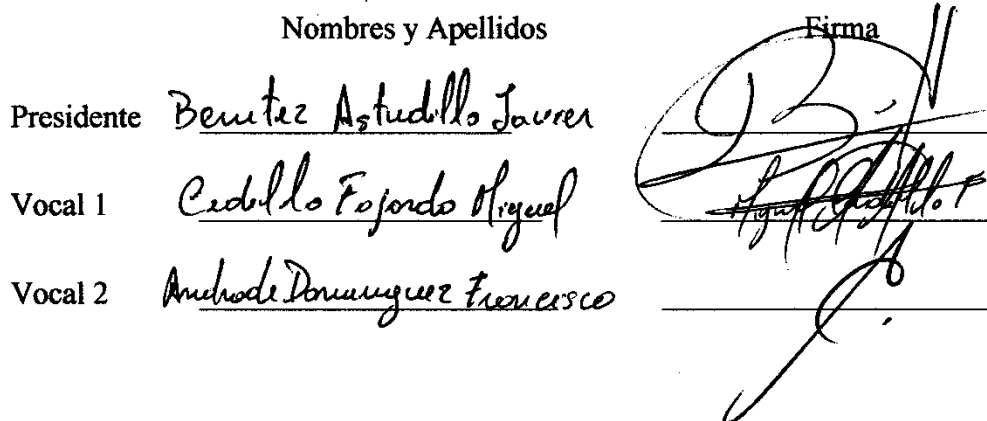 Nombres y Apellidos Firma
Presidente Benitez Astudillo Javier
Vocal 1 Cedillo Fajardo Miguel Miguel Cedillo F
Vocal 2 Andrade Dominguez Francisco